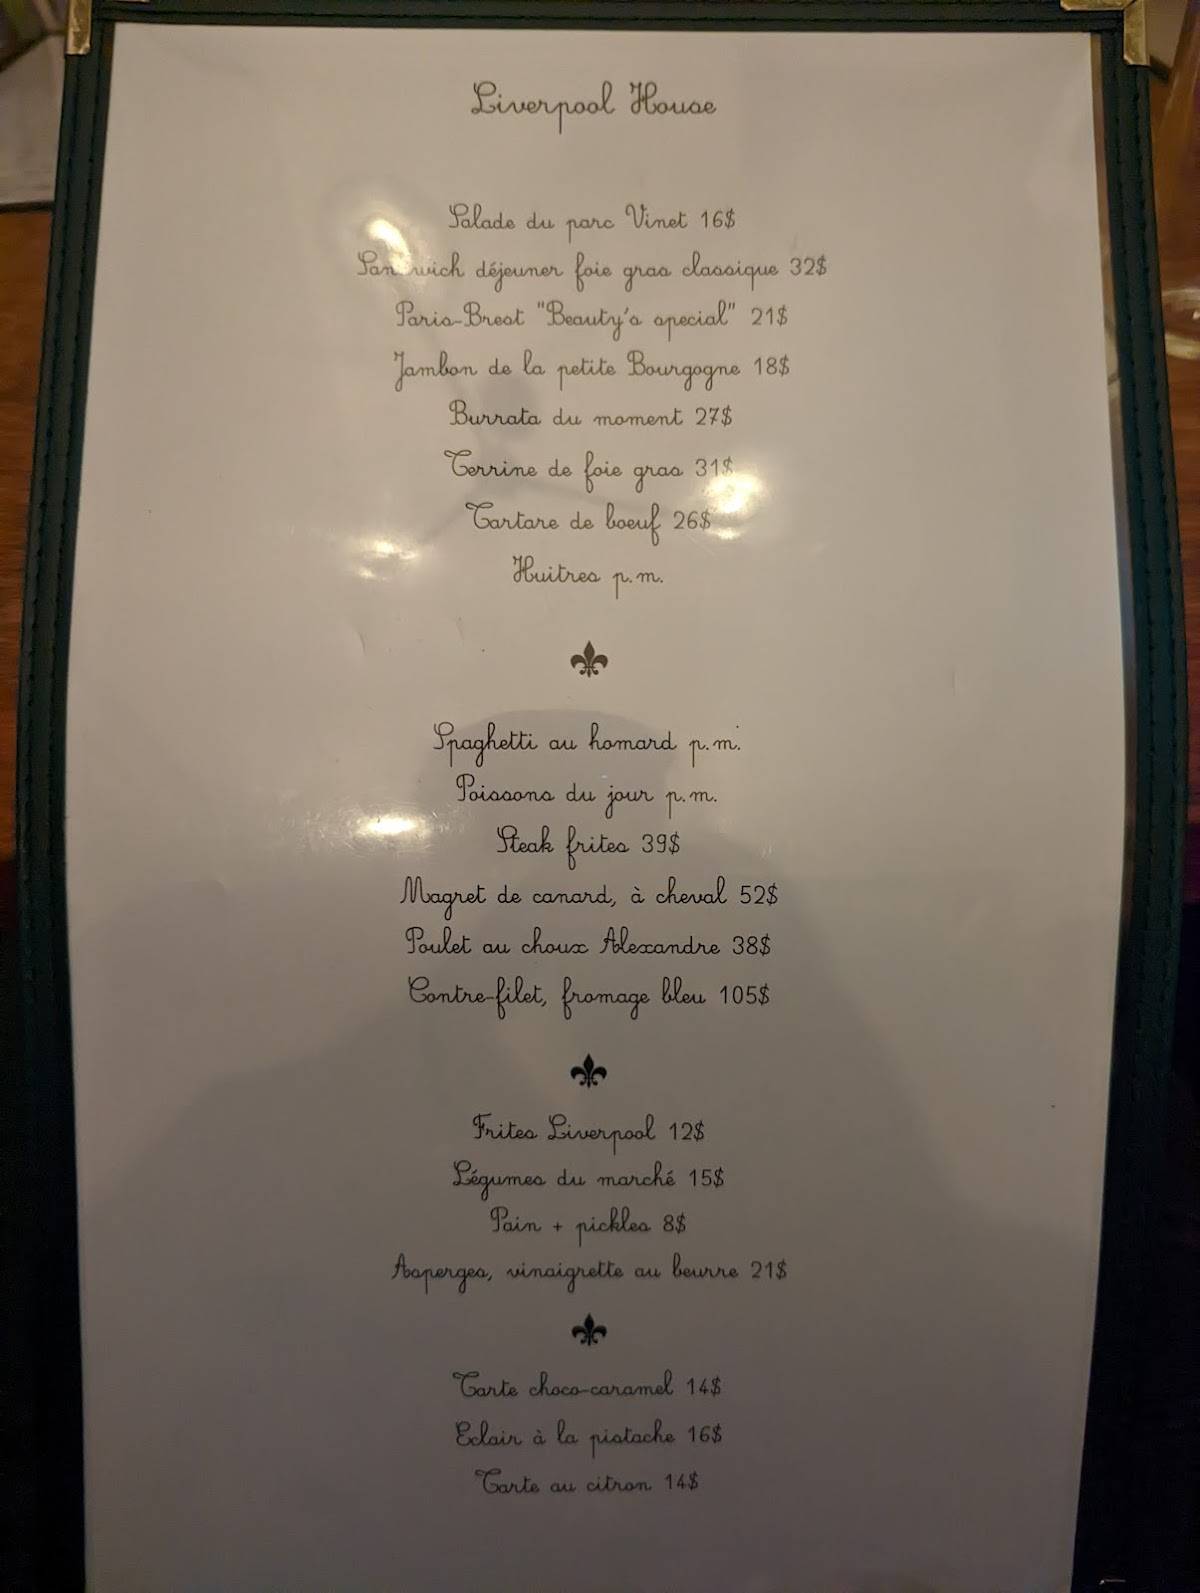 Liverpool House
Salade du parc Vinet 16$
Sandwich déjeuner foie gras classique 32$
Paris-Brest "Beauty's special" 21$
Jambon de la petite Bourgogne 18$
Burrata du moment 27$
Terrine de foie gras 31$
Tartare de boeuf 26$
Huitres p.m.
Spaghetti au homard p.m.
Poissons du jour p.m.
Steak frites 39$
Magret de canard, à cheval 52$
Poulet au choux Alexandre 38$
Contre-filet, fromage bleu 105$
Frites Liverpool 12$
Légumes du marché 15$
Pain + pickles 8$
Asperges, vinaigrette au beurre 21$
Tarte choco-caramel 14$
Eclair à la pistache 16$
Tarte au citron 14$